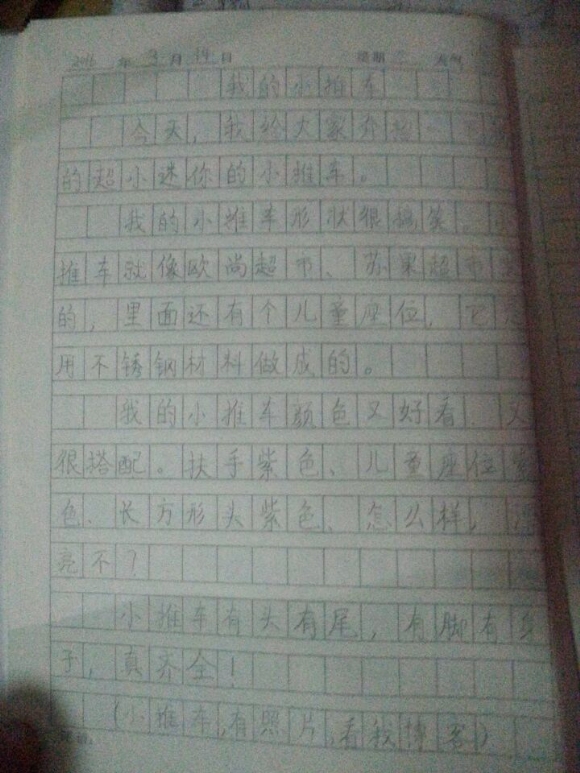 年3月19日 星期 天气
我的小推车
今天，我给大家介绍一下我
的超小迷你的小推车。
我的小推车形状很搞笑。小
推车就像欧尚超市、苏果超市里
的，里面还有个儿童座位，它是
用不锈钢材料做成的。
我的小推车颜色又好看，又
很搭配。扶手紫色、儿童座位紫
色、长方形头紫色，怎么样，漂
亮不？
小推车有头有尾，有脚有身
子，真齐全！
（小推车，有照片，看我博客）